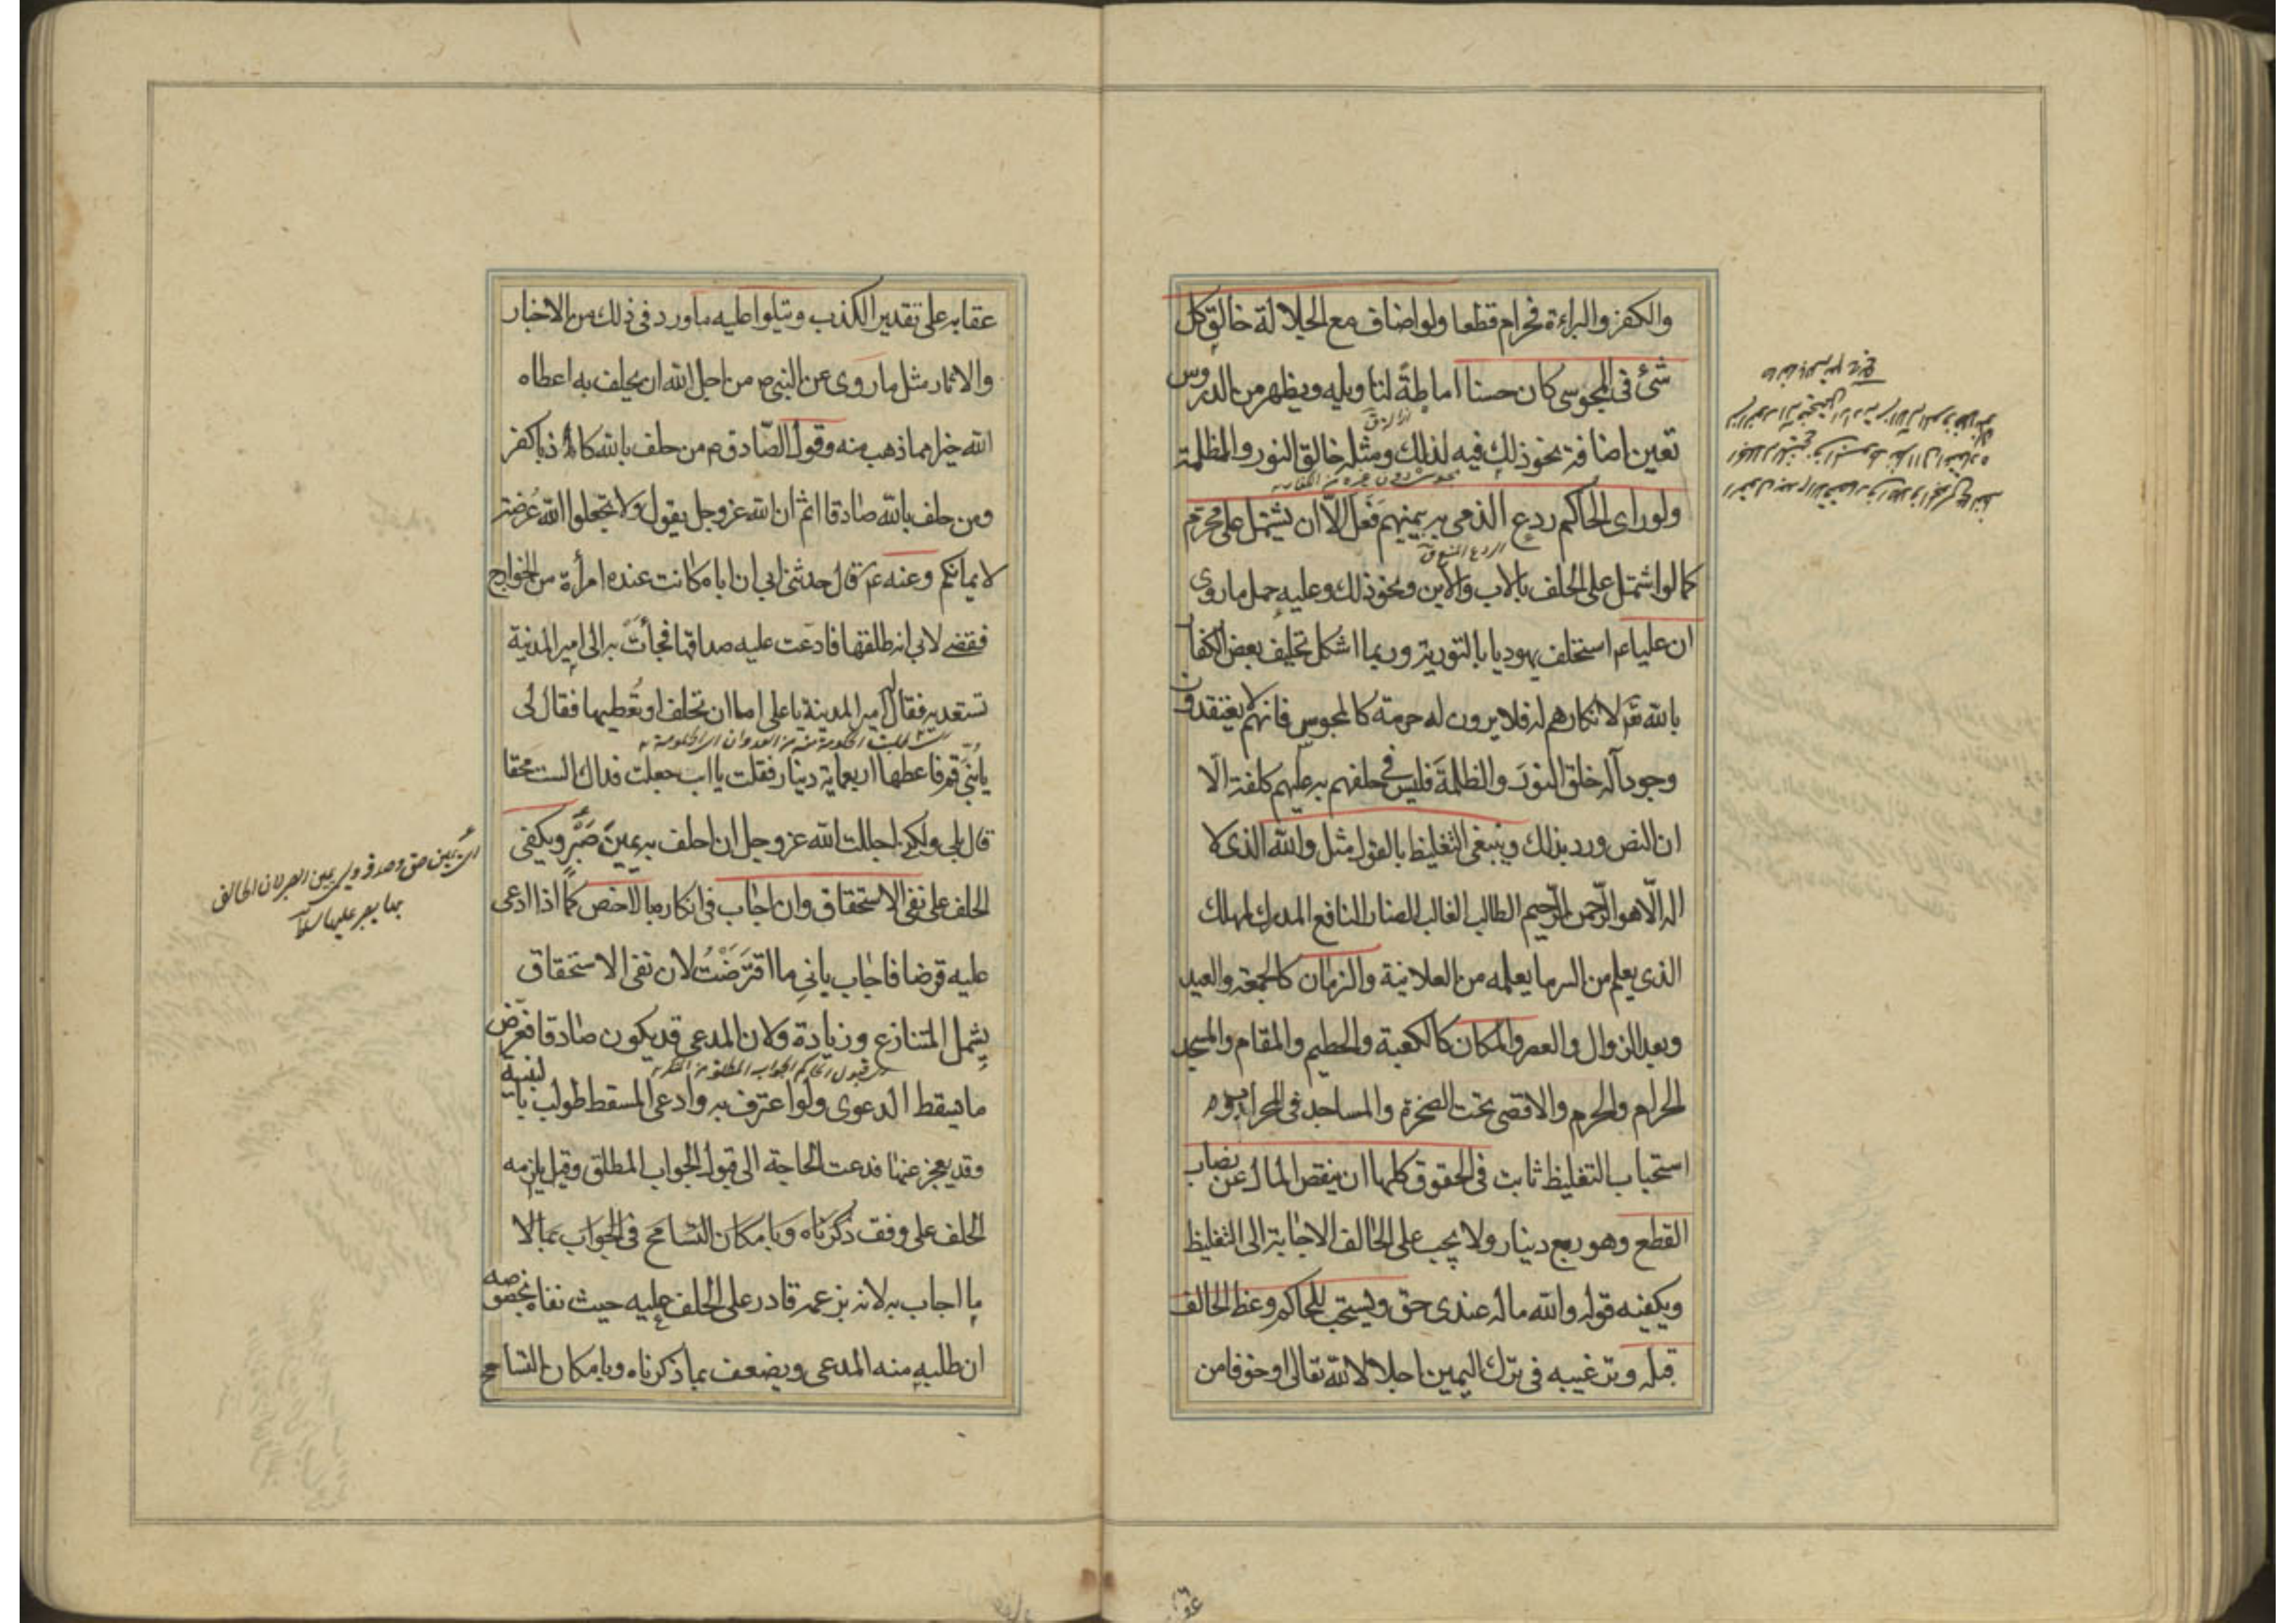 والكفر والبراءة فحرام قطعا ولو اضاف مع الجلالة خالق كل
شئ فى المجوسى كان حسنا اماطةً لتاويله ويظهر من الدروس
تعين اضافة نحو ذلك فيه لذلك ومثله خالق النور والظلمة
ولو راى الحاكم ردع الذمى بيمينهم فَعَل الّا ان يشتمل على محرّم
كما لو اشتمل على الحلف بالاب والابن ونحو ذلك وعليه حمل ما روى
ان عليا ع استحلف يهوديا بالتورية وربما اشكل تحليف بعض الكفار
بالله تع لانكارهم له فلا يرون له حرمة كالمجوس فانهم لا يعتقدون
وجود آله خلق النورَ والظلمةَ فليس فى حلفهم به عليهم كلفة الّا
ان النص ورد بذلك وينبغى التغليظ بالقول مثل والله الذى لا
اله الّا هو الرّحمن الرّحيم الطالب الغالب الضار النافع المدرك المهلك
الذى يعلم من السر ما يعلمه من العلانية والزمان كالجمعة والعيد
وبعد الزوال والعصر والمكان كالكعبة والحطيم والمقام والمسجد
الحرام والحرم والاقصى تحت الصخرة والمساجد فى المحراب
استحباب التغليظ ثابت فى الحقوق كلها ان ينقص المال عن نصاب
القطع وهو ربع دينار ولا يجب على الحالف الاجابة الى التغليظ
ويكفيه قوله والله ماله عندى حق ويستحب للحاكم وعظ الحالف
قبله وترغيبه فى ترك اليمين اجلالا لله تعالى او خوفا من
عقابه على تقدير الكذب ويتلوا عليه ما ورد فى ذلك من الاخبار
والاثار مثل ما روى عن النبى ص من اجل الله ان يحلف به اعطاه
الله خيرا مما ذهب منه وقول الصّادق م من حلف بالله كاذبا كفر
ومن حلف بالله صادقا اثم ان الله عز وجل يقول ولا تجعلوا الله عُرضة
لايمانكم وعنه ع قال حدثنى ابى ان اباه كانت عنده امرأة من الخوارج
فقضى لابى انه طلقها فادّعت عليه صداقها فجأت به الى امير المدينة
تستعديه فقال امير المدينة يا على اما ان تحلف او تُعطيها فقال لى
يابُنىّ قم فاعطها اربعماية دينار فقلت يا اب جعلت فداك الست محقا
قال بلى ولكنى اجللت الله عز وجل ان احلف به يمينَ صَبْرٍ ويكفى
الحلف على نفى الاستحقاق وان اجاب فى انكاره بالاخص كما اذا ادعى
عليه قرضا فاجاب بانى ما اقترَضْتُ لان نفى الاستحقاق
يشمل المتنازع وزيادة ولان المدعى قد يكون صادقا فعرض
ما يسقط الدعوى ولو اعترف به وادعى المسقط طولب بالبينة
وقد يعجز عنها فدعت الحاجة الى قبول الجواب المطلق وقيل يلزمه
الحلف على وفق ذكرناه وبامكان التسامح فى الجواب بما لا
ما اجاب به لانه بزعمه قادر على الحلف عليه حيث نفاه بخصوصه
ان طلبه منه المدعى ويضعف بما ذكرناه وبامكان التسامح